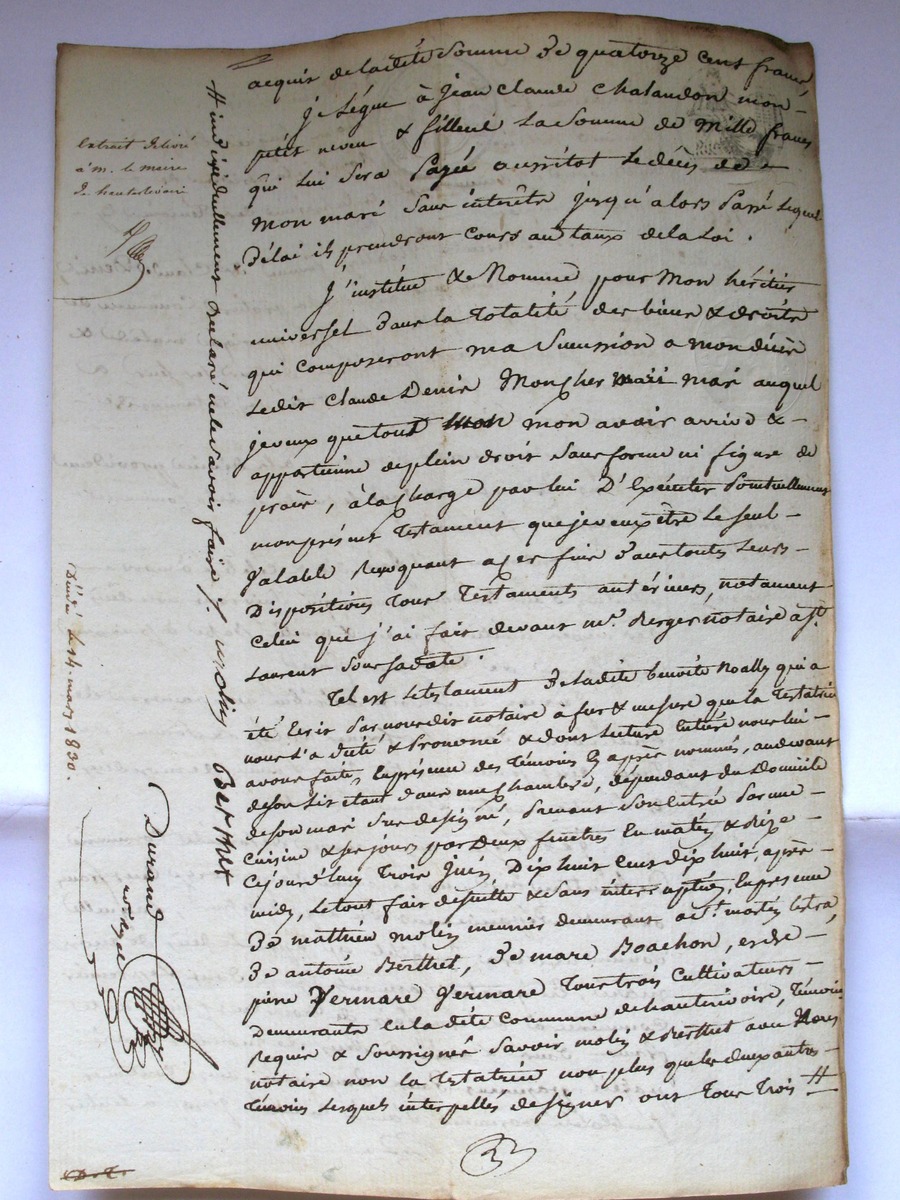 acquis de ladite Somme De quatorze Cent francs,
Je Légue à Jean Claude Chalandon mon
petit neveu & filleul La Somme de Mille francs
qui Lui Sera Payée aussitot Le décès de
mon maré Sans intérêts jusqu'alors Passé Lequel
Délai ils prendront Cours au taux de la Loi.
J'institue & Nomme pour Mon héritier
universel Dans La Totalité des biens & droits
qui Composeront ma Succession a mon décès
Ledit Claude Denis Mon cher mari auquel
je veux que tout mon avoir arrive &
appartienne de plein droit Sans forme ni figure de
procès, à la Charge par lui D'Exécuter Ponctuellement
mon présent Testament que je veux être Le Seul
Valable Revoquant a ces fins Dans toutes Leurs
Dispositions Tous Testaments antérieurs, notament
Celui que j'ai fait devant me. Berger notaire a St.
Laurent
Tel est Le testament De Ladite benoite Noally qui a
été Ecrit Par nous dit notaire à fur & mesure que La Testatrice
nous L'a dicté & Prononcé & dont Lecture Entière nous lui
avons faite, En présence des Témoins Ci après nommés, au devant
de son Lit étant Dans une Chambre, dépendant du Domicile
de son mari Sus designé, Prenant Son Entrée Par une
Cuisine & Ses jours par Deux fenêtres En matin & bize
Cejourd'huy Trois Juin, Dix huit Cent dix huit, après
midy, Le tout fait de Suitte & Sans interruption, En présence
De mathieu molin meunier demeurant a St. martin Lestra,
De antoine Berthet, De marc Boachon, et de
pierre Vermare Tous trois Cultivateurs
Demeurants En la dite Commune de hauterivoire, Témoins
Requis & Soussignés Savoir molin & Berthet avec Nous
notaire non La Testatrice non plus que Les deux autres
Témoins Lesquels interpellés de Signer ont Tous Trois #
# individuellement Déclaré ne le Savoir faire ./. molin Berthet
Durand
Extrait délivré
à m. le Maire
de hauterivoire
Décédé Le 14 mars 1830.